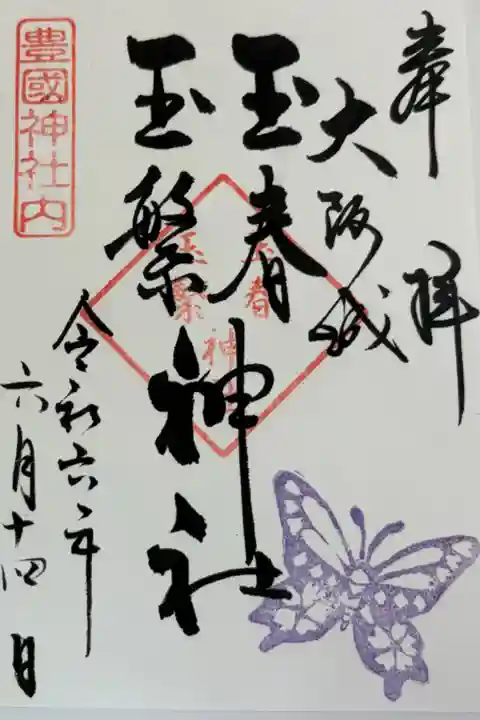 奉拝
大阪城
玉春
玉繁
神社
令和六年
六月十四日
豊國神社内
玉春
玉繁
神社